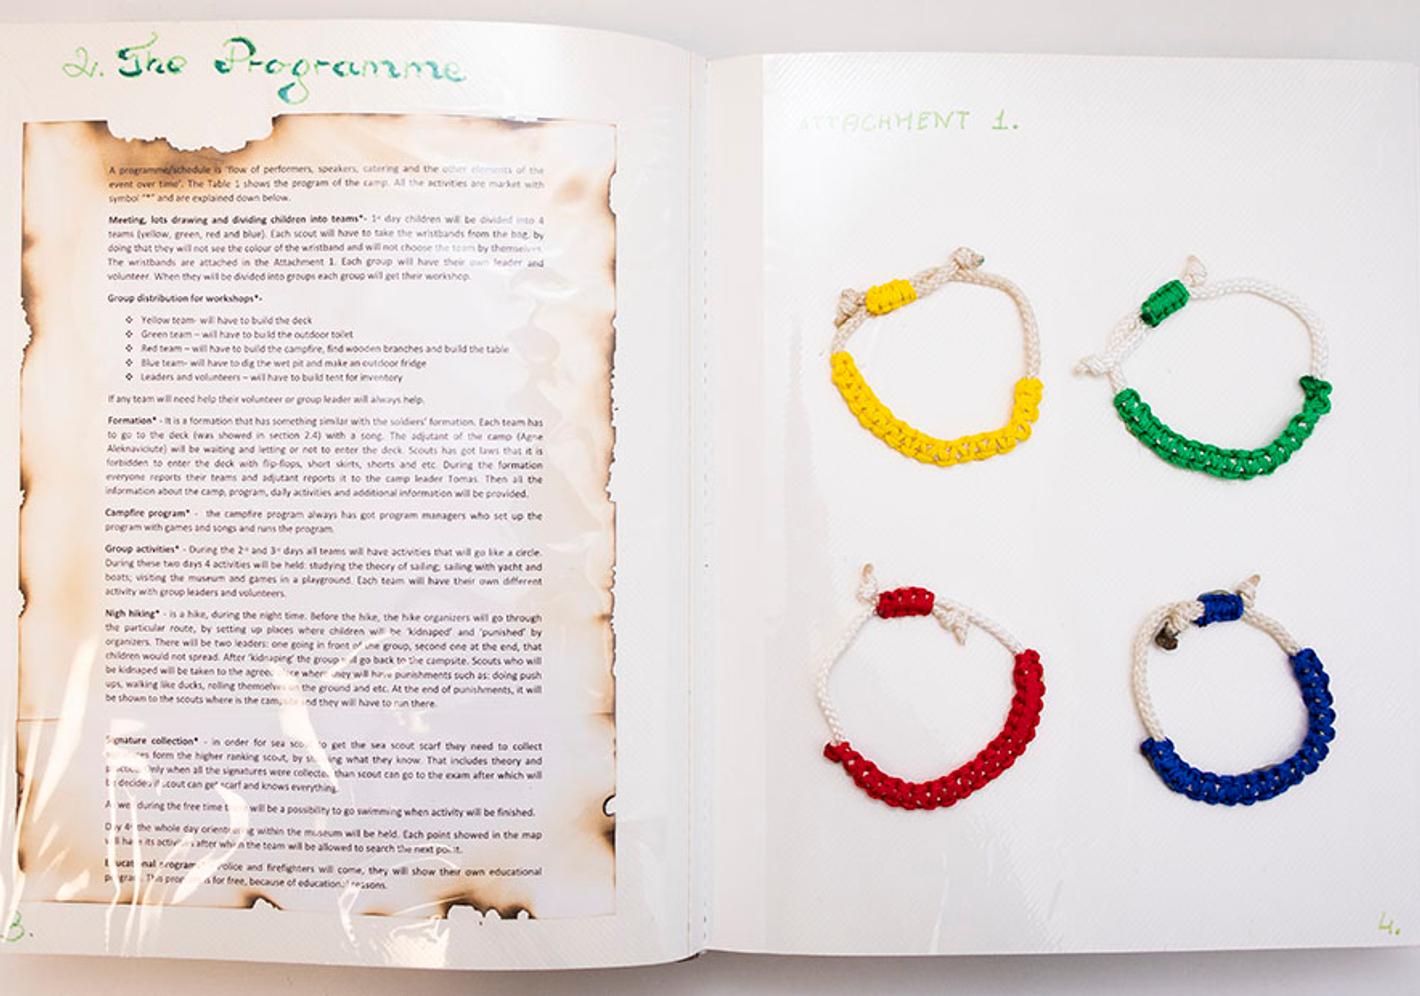 2. The Programme
A programme/schedule is 'flow of performers, speakers, catering and the other elements of the
event over time'. The Table 1 shows the program of the camp. All the activities are market with
symbol "*" and are explained down below.
Meeting, lots drawing and dividing children into teams*- 1st day children will be divided into 4
teams (yellow, green, red and blue). Each scout will have to take the wristbands from the bag, by
doing that they will not see the colour of the wristband and will not choose the team by themselves.
The wristbands are attached in the Attachment 1. Each group will have their own leader and
volunteer. When they will be divided into groups each group will get their workshop.
Group distribution for workshops*-
❖ Yellow team- will have to build the deck
❖ Green team – will have to build the outdoor toilet
❖ Red team – will have to build the campfire, find wooden branches and build the table
❖ Blue team- will have to dig the wet pit and make an outdoor fridge
❖ Leaders and volunteers – will have to build tent for inventory
If any team will need help their volunteer or group leader will always help.
Formation* - It is a formation that has something similar with the soldiers' formation. Each team has
to go to the deck (was showed in section 2.4) with a song. The adjutant of the camp (Agne
Aleknaviciute) will be waiting and letting or not to enter the deck. Scouts has got laws that it is
forbidden to enter the deck with flip-flops, short skirts, shorts and etc. During the formation
everyone reports their teams and adjutant reports it to the camp leader Tomas. Then all the
information about the camp, program, daily activities and additional information will be provided.
Campfire program* - the campfire program always has got program managers who set up the
program with games and songs and runs the program.
Group activities* - During the 2nd and 3rd days all teams will have activities that will go like a circle.
During these two days 4 activities will be held: studying the theory of sailing; sailing with yacht and
boats; visiting the museum and games in a playground. Each team will have their own different
activity with group leaders and volunteers.
Nigh hiking* - is a hike, during the night time. Before the hike, the hike organizers will go through
the particular route, by setting up places where children will be 'kidnaped' and 'punished' by
organizers. There will be two leaders: one going in front of the group, second one at the end, that
children would not spread. After 'kidnaping' the group will go back to the campsite. Scouts who will
be kidnaped will be taken to the agreed where they will have punishments such as: doing push
ups, walking like ducks, rolling themselves on the ground and etc. At the end of punishments, it will
be shown to the scouts where is the campsite and they will have to run there.
Signature collection* - in order for sea scout to get the sea scout scarf they need to collect
form the higher ranking scout, by what they know. That includes theory and
Only when all the signatures were collected than scout can go to the exam after which will
be decided if scout can get scarf and knows everything.
As well during the free time there will be a possibility to go swimming when activity will be finished.
Day 4th the whole day orienteering within the museum will be held. Each point showed in the map
will have its activities after which the team will be allowed to search the next point.
Educational programs police and firefighters will come, they will show their own educational
program. This program is for free, because of educational reasons.
3.
ATTACHMENT 1.
4.